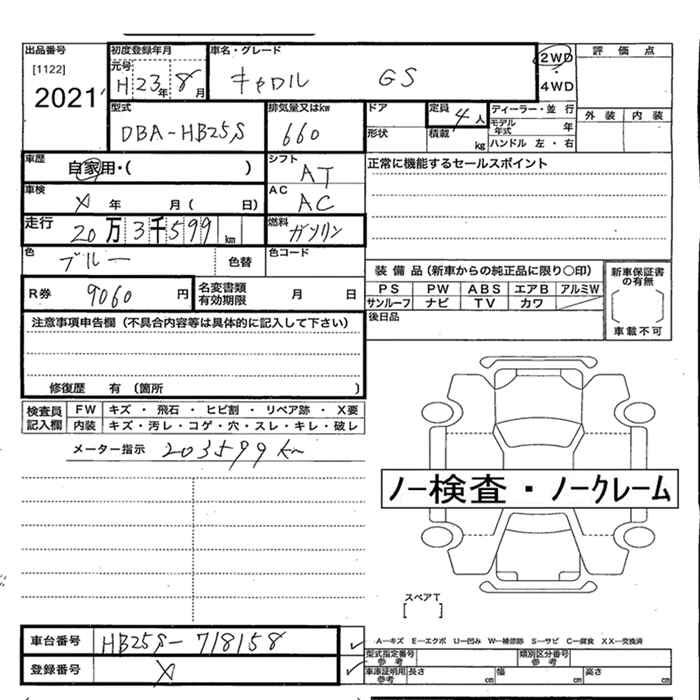 出品番号 初度登録年月 車名・グレード 2WD 評価点
[1122] 元号 H 23年 8月 キャロル GS ・
2021 4WD
型式 排気量又はkw ドア 定員 4人 ディーラー・並行 外装 内装
DBA-HB25S 660 形状 積載 kg モデル年式 年
ハンドル 左・右
車歴 自家用・( ) シフト AT 正常に機能するセールスポイント
車検 X 年 月 ( 日) AC AC
走行 20万3千599km 燃料 ガソリン
色 ブルー 色替 色コード
装備品(新車からの純正品に限り○印) 新車保証書の有無
R券 9060円 名変書類有効期限 月 日 PS PW ABS エアB アルミW
サンルーフ ナビ TV カワ 車載不可
注意事項申告欄(不具合内容等は具体的に記入して下さい) 後日品
修復歴 有 (箇所 )
検査員 FW キズ ・ 飛石 ・ ヒビ割 ・ リペア跡 ・ X要
記入欄 内装 キズ・汚レ・コゲ・穴・スレ・キレ・破レ
メーター指示 203599km
ノー検査・ノークレーム
スペアT
[ ]
車台番号 HB25S-718158 A—キズ E—エクボ U—凹み W—補修跡 S—サビ C—腐食 XX—交換済
型式指定番号 参考 類別区分番号 参考
登録番号 X 車庫証明用 参考 長さ cm 幅 cm 高さ cm